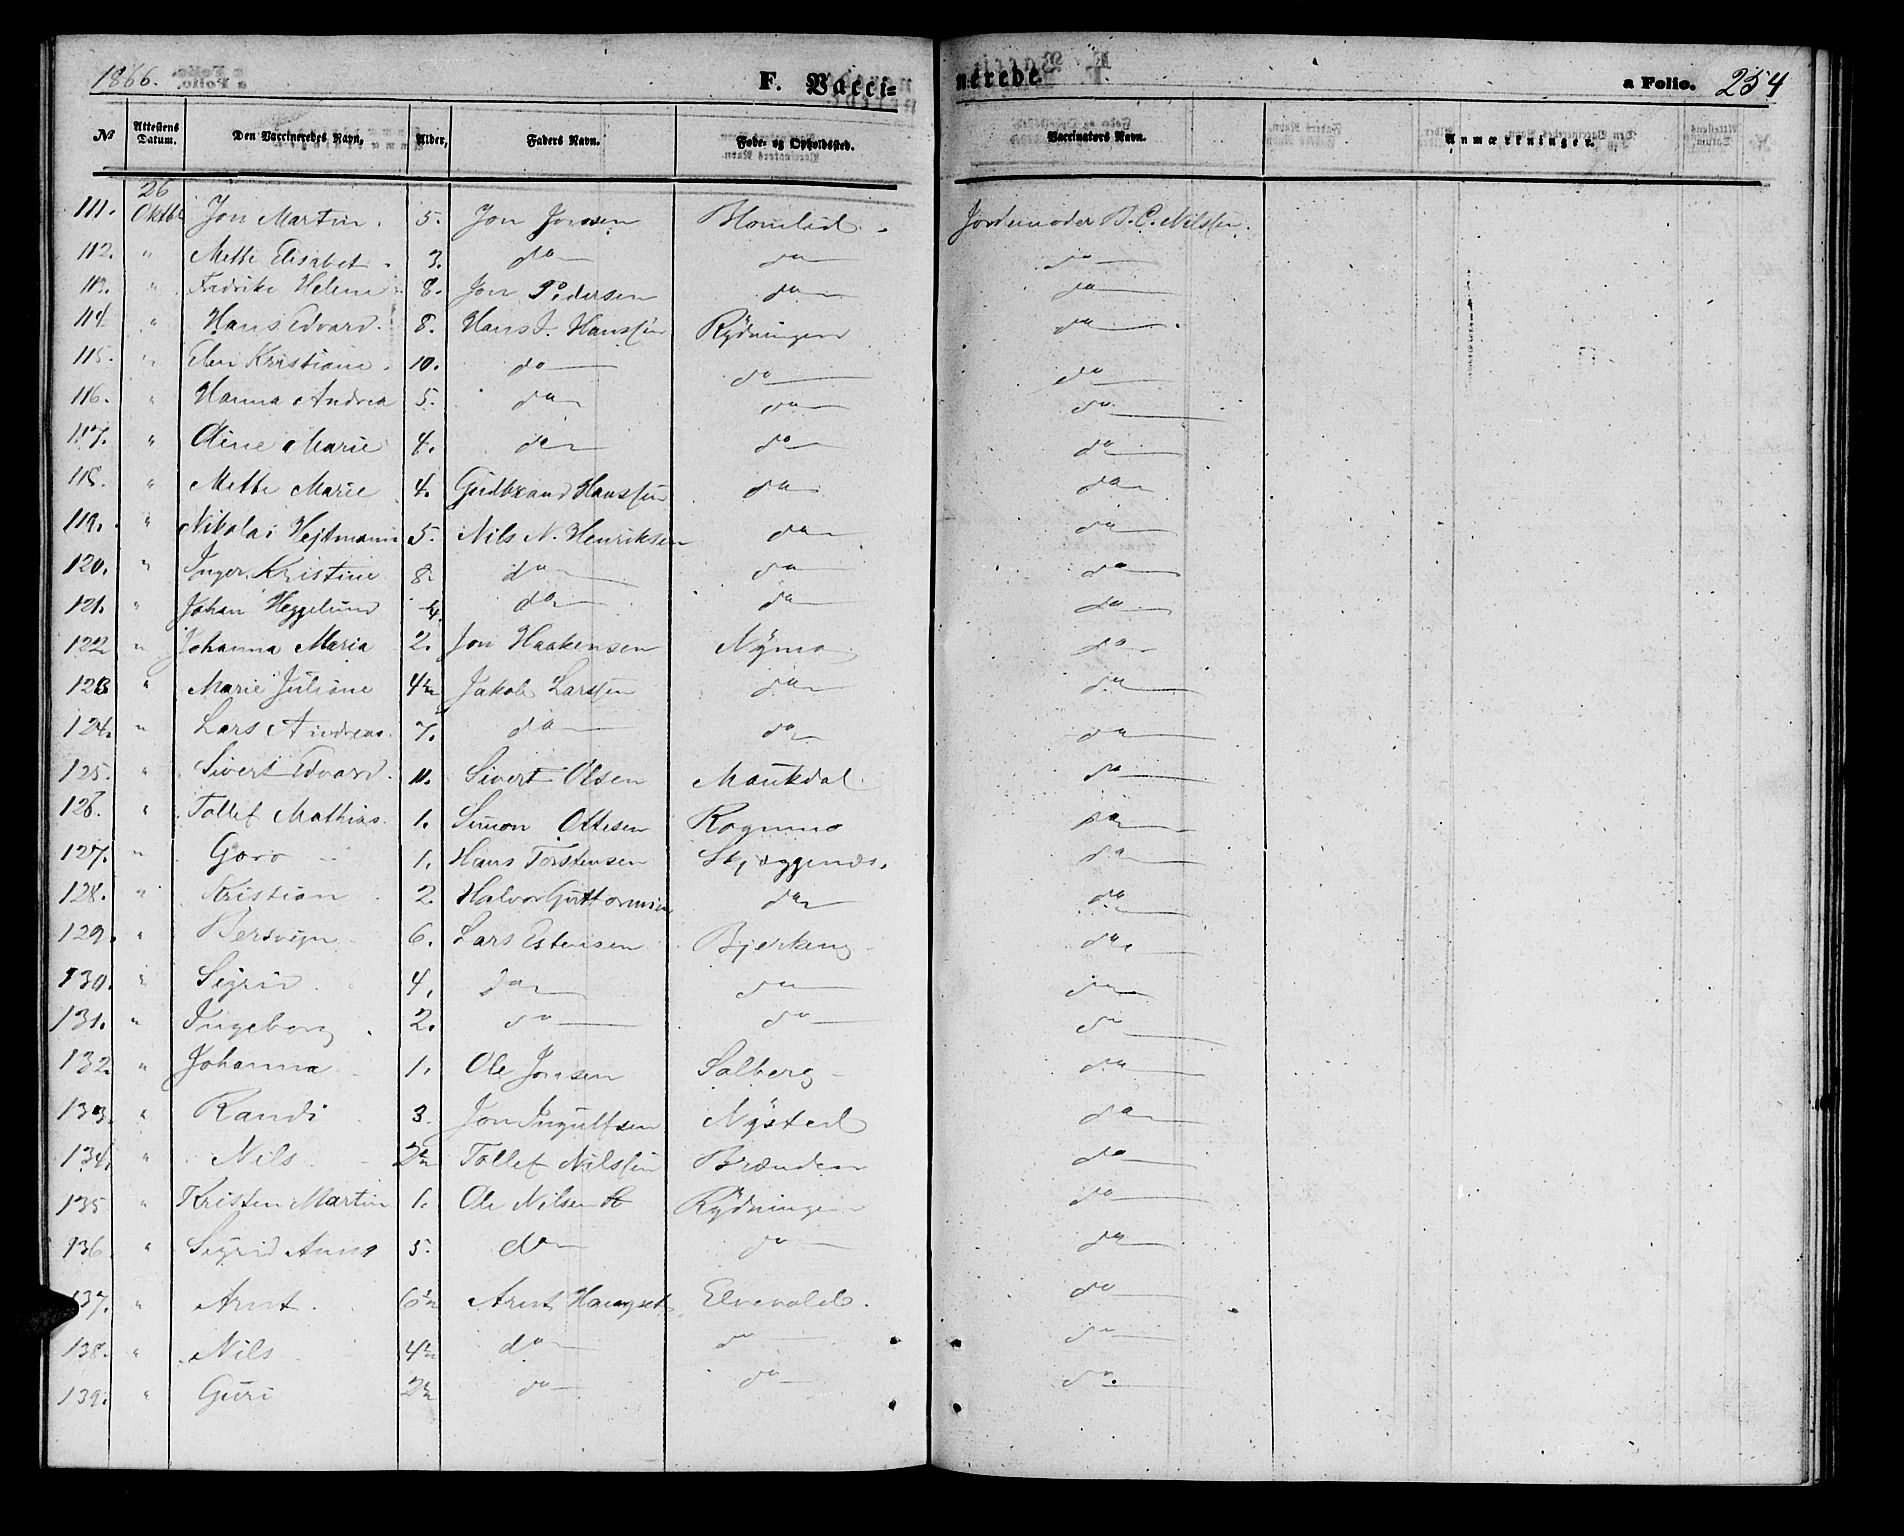 1866. F. Vacci= nerede. a Folio. 254
No Attestens Datum. Den Vaccineredes Navn, Alder, Faders Navn. Føde- og Opholdssted. Vaccinators Navn. Anmærkninger.
26
111. Oktbr Jon Martin. 5. Jon Jonsen Homlid. Jordemoder B. C. Nilssen.
112. " Mette Elisabet. 3. do do do
113. " Fredrike Helene 8. Jon Pedersen do do
114. " Hans Edvard. 8. Hans J. Hanssen Rydningen do
115. " Elen Kristiane. 10. do do do
116. " Hanna Andrea 5. do do do
117. " Oline Marie 4. do do do
118. " Mette Marie 4. Gudbrand Hanssen do do
119. " Nikolai Hejtmann 5. Nils N. Henriksen do do
120. " Inger Kristine 8 do do do
121. " Johan Heggelund 4. do do do
122 " Johanna Maria 2. Jon Haakensen Nymo do
123 " Marie Juliane 4½ Jakob Larssen do do
124. " Lars Andreas. 7. do do do
125. " Sivert Edvard. 11. Sivert Olsen Maukdal do
126. " Tollef Mathias. 1. Simon Ottesen Rognmo do
127. " Goro 1. Hans Torstensen Skjæggenæs. do
128. " Kristian 2. Halvor Guttormsen do do
129. " Bersvejn 6. Lars Estensen Bjerkeng do
130. " Sigrid. 4. do do do
131. " Ingeborg. 2. do do do
132. " Johanna 1. Ole Jonsen Solberg do
133. " Randi 3. Jon Ingulfsen Nysted do
134. " Nils. 2½ Tollef Nilssen Brænden do
135 " Kristen Martin 1. Ole Nilsen Rydningen do
136 " Sigrid Anna 5. do do do
137. " Arnt. 6½ Arnt Haugset Elvevold. do
138. " Nils 4½ do do do
139. " Guri 2½ do do do.